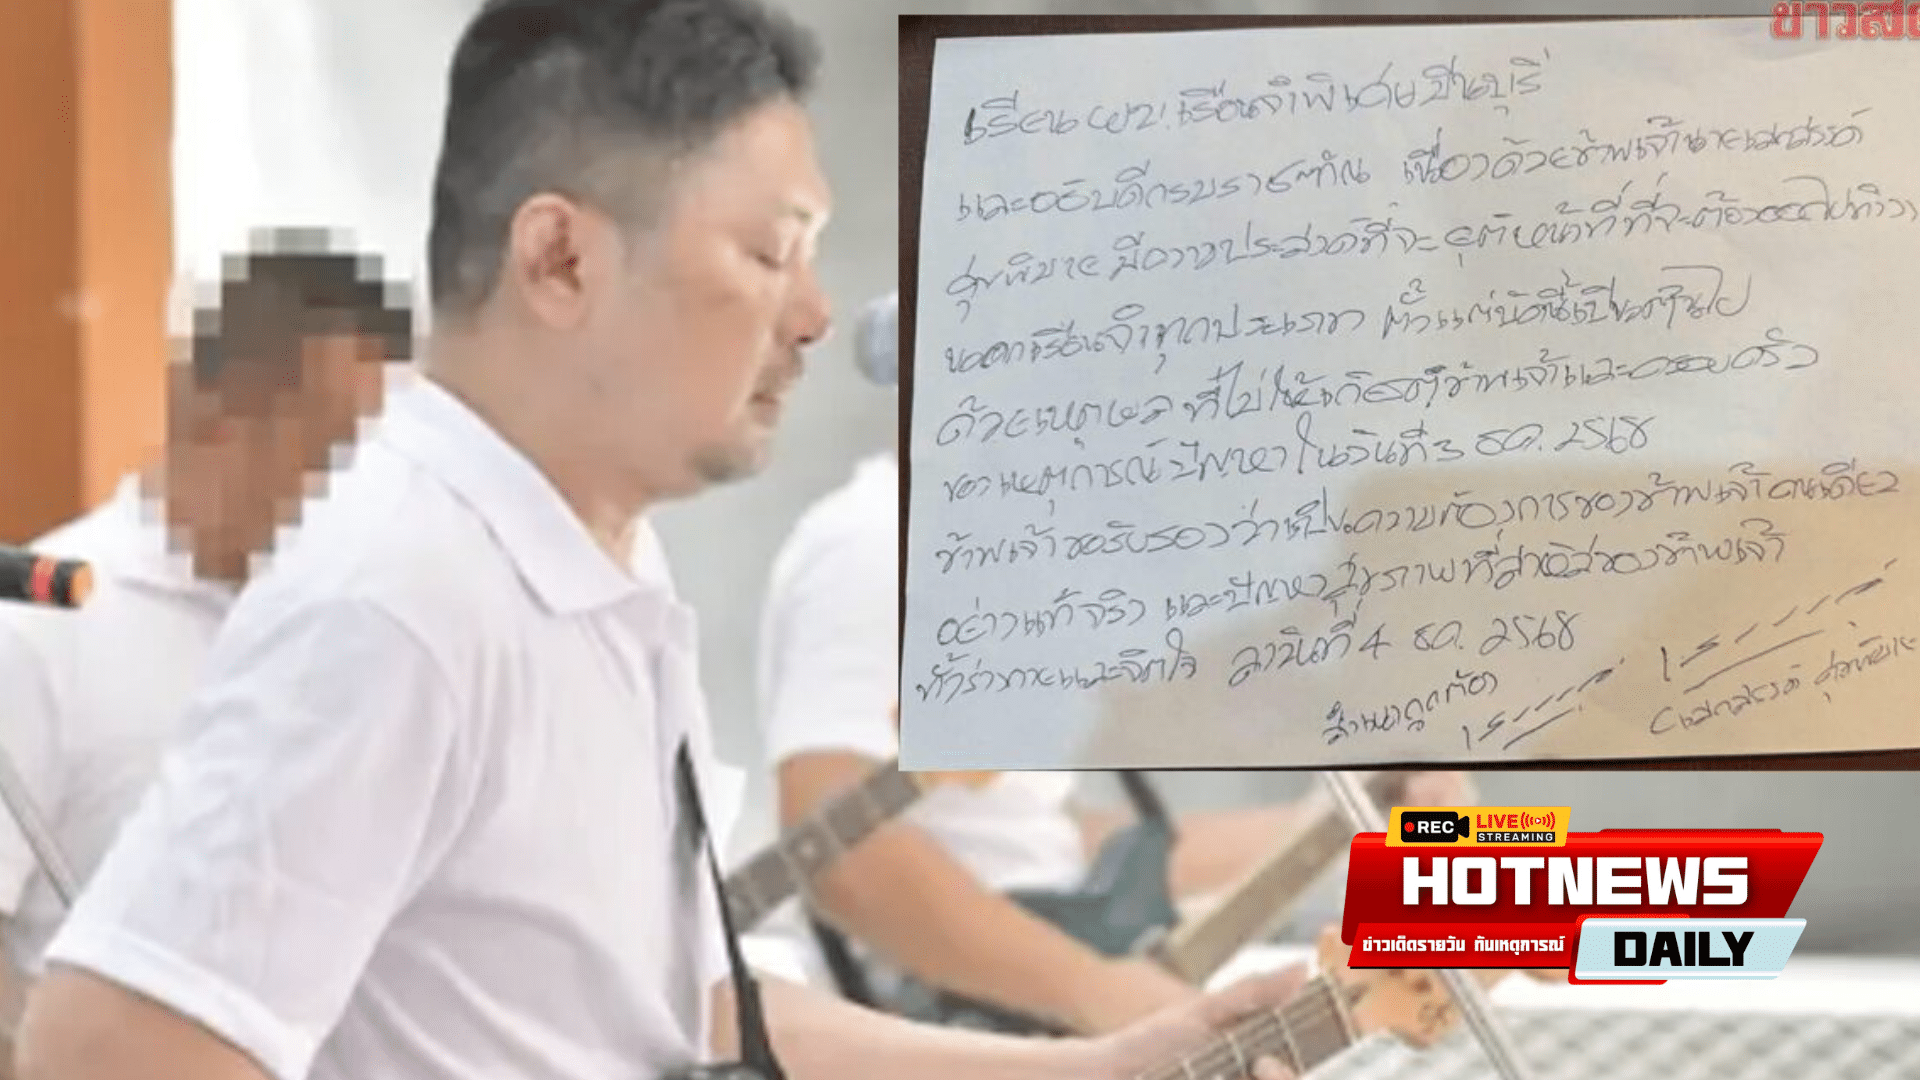 ข่าวสด
เรียน ผบ.เรือนจำพิเศษมีนบุรี
และอธิบดีกรมราชทัณฑ์ เนื่องด้วยข้าพเจ้านายเสกสรรค์
ศุขพิมาย มีความประสงค์ที่จะยุติหน้าที่ที่จะต้องออกไป
นอกเรือนจำทุกประเภท ตั้งแต่บัดนี้เป็นต้นไป
ด้วยเหตุผล ที่ไม่ให้เกิดข้าพเจ้าและครอบครัว
ของเหตุการณ์ปัญหาในวันที่ 3 ธค. 2568
ข้าพเจ้าขอรับรองว่าเป็นความต้องการของข้าพเจ้าคนเดียว
อย่างแท้จริง และปัญหาสุขภาพที่ของข้าพเจ้า
ทั้งร่างกายและจิตใจ ลาวันที่ 4 ธค. 2568
สำเนาถูกต้อง
(เสกสรรค์ ศุขพิมาย
REC LIVE STREAMING
HOTNEWS
ข่าวเด็ดรายวัน ทันเหตุการณ์
DAILY